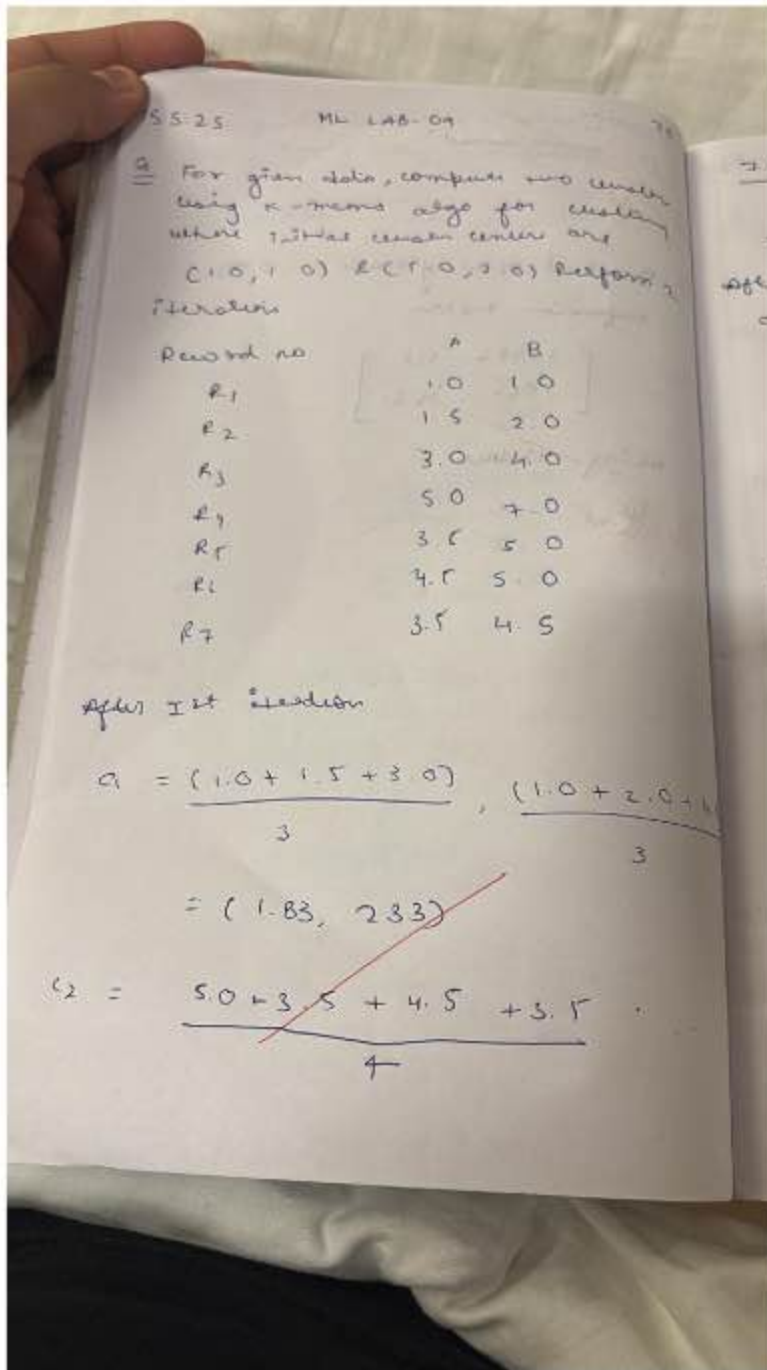 5 5 25 ML LAB-09
Q For given data, compute two cluster
using K-means algo for clustering
where initial cluster centers are
(1.0, 1.0) & (5.0, 7.0) Perform 2
iterations
Record no A B
R1 1.0 1.0
R2 1.5 2.0
R3 3.0 4.0
R4 5.0 7.0
R5 3.5 5.0
R6 4.5 5.0
R7 3.5 4.5
After Ist iteration
C1 = (1.0 + 1.5 + 3.0) , (1.0 + 2.0 +
3 3
= (1.83, 2.33)
C2 = 5.0 + 3.5 + 4.5 + 3.5
4